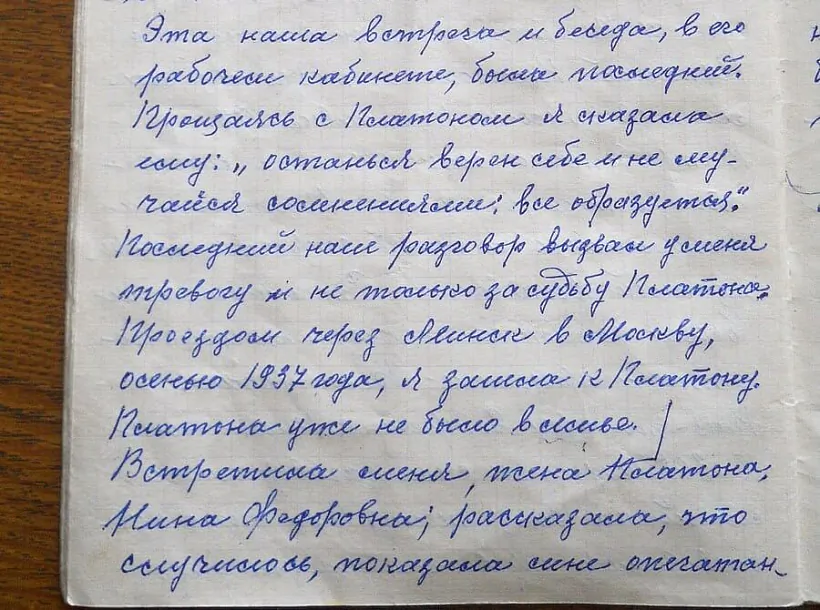 Эта наша встреча и беседа, в его
рабочем кабинете, была последней.
Прощаясь с Платоном я сказала
ему: „останься верен себе и не му-
чайся сомнениями: все образуется."
Последний наш разговор вызвал у меня
тревогу и не только за судьбу Платона.
Проездом через Минск в Москву,
осенью 1937 года, я зашла к Платону.
Платона уже не было в семье.
Встретила меня, жена Платона,
Нина Федоровна; рассказала, что
случилось, показала мне опечатан-